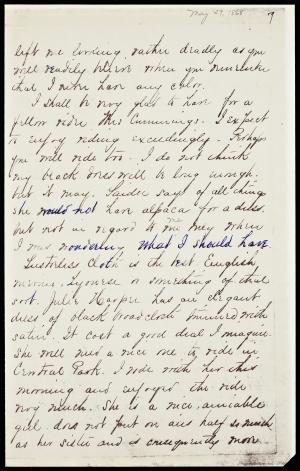 May 27, 1868
7
left me looking rather deadly as you
will readily believe when you remember
that I never have any color.
I shall be very glad to have for a
fellow rider Miss Cummings. I expect
to enjoy riding exceedingly. Perhaps
you will ride too. I do not think
my black dress will be long enough.
but it may. Saidee says of all things
she would not have alpaca for a dress.
but not in regard to me
when
I was wondering what I should have.
Lustreless cloth is the best English
or something of that
sort. Julie Harper has an elegant
dress of black broadcloth trimmed with
satin. It cost a good deal I imagine.
She will need a nice one to ride in
Central Park. I rode with her this
morning and enjoyed the ride
very much. She is a nice, amiable
girl does not put on airs half so much
as her sister and is consequently more